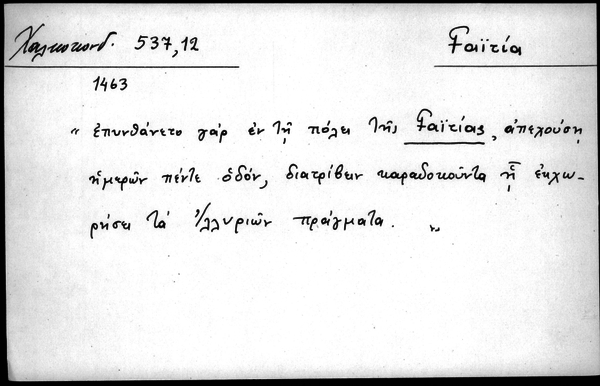 Χαλκοκονδ. 537,12
Γαϊτία
1463
" ἐπυνθάνετο γάρ ἐν τῇ πόλει τῆς Γαϊτίας, ἀπεχούσῃ
ἡμερῶν πέντε ὁδόν, διατρίβειν καραδοκοῦντα ᾗ ἐκχω-
ρήσει τά Ἰλλυριῶν πράγματα. "